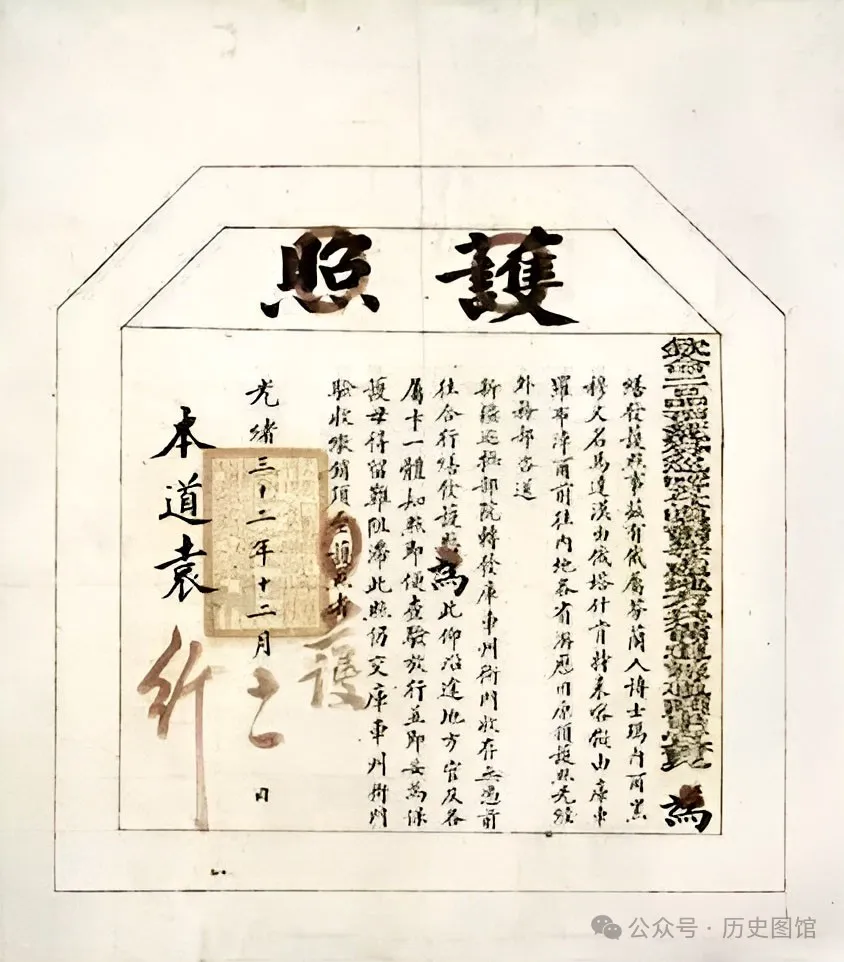 護照
欽命二品銜 地方兵備道 為
繕發護照事茲有俄屬芬蘭人博士瑪內爾黑
穆又名馬達漢由俄塔什肯特來喀擬由庫車
羅布淖爾前往內地各省游歷因原領護照先經
外務部咨送
新疆巡撫部院轉發庫車州衙門收存無憑前
往合行繕發護照為此仰沿途地方官及各
屬卡一體知照即便查驗放行並即妥為保
護毋得留難阻滯此照仍交庫車州衙門
驗收繳銷須至護照者
護
光緒三十二年十二月 日
本道袁
行
公众号 · 历史图馆